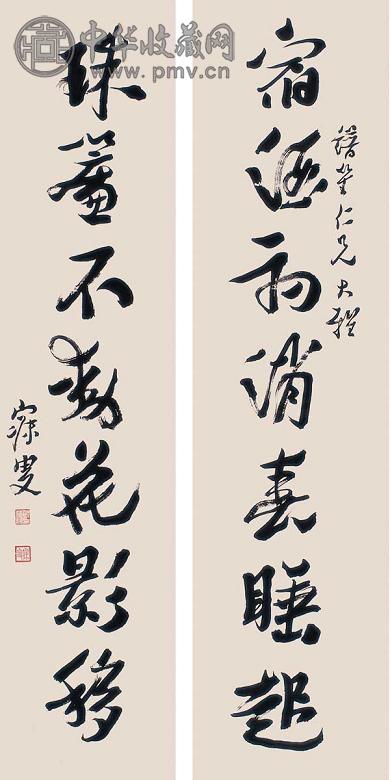 中华收藏网
www.pmv.cn
宿酒初消春睡起
仁兄大雅
珠帘不动花影移
寐叟